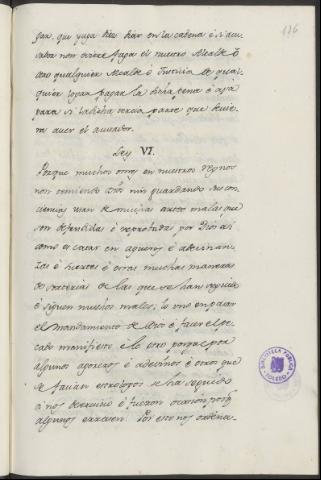 176
gar, que yaga tres dias en la cadena é si acu-
sador non oviere faga el nuestro Alcalde ó
otro qualquier Alcalde ó Justicia de qual-
quier logar pagar la dicha pena é aya
para si la dicha tercia parte que havie-
ra aver el acusador.
Ley VI.
Porque muchos omes en nuestros Regnos
non temiendo Dios nin guardando sus con-
ciencias usan de muchas artes malas que
son defendidas é reprobadas por Dios asi
como es catar en agueros é adevinan-
zas é suertes é otras muchas maneras
de sorterias de las que se han seguido
é siguen muchos males; lo uno en pasar
el mandamiento de Dios é facer el pe-
cado manifiesto é lo otro porque por
algunos agoreros é adevinos é otros que
se facian estrologos se ha seguido
á nos deservicio é fueron ocasion porque
algunos errasen. Por esto nos ordena-
BIBLIOTECA PUBLICA
TOLEDO